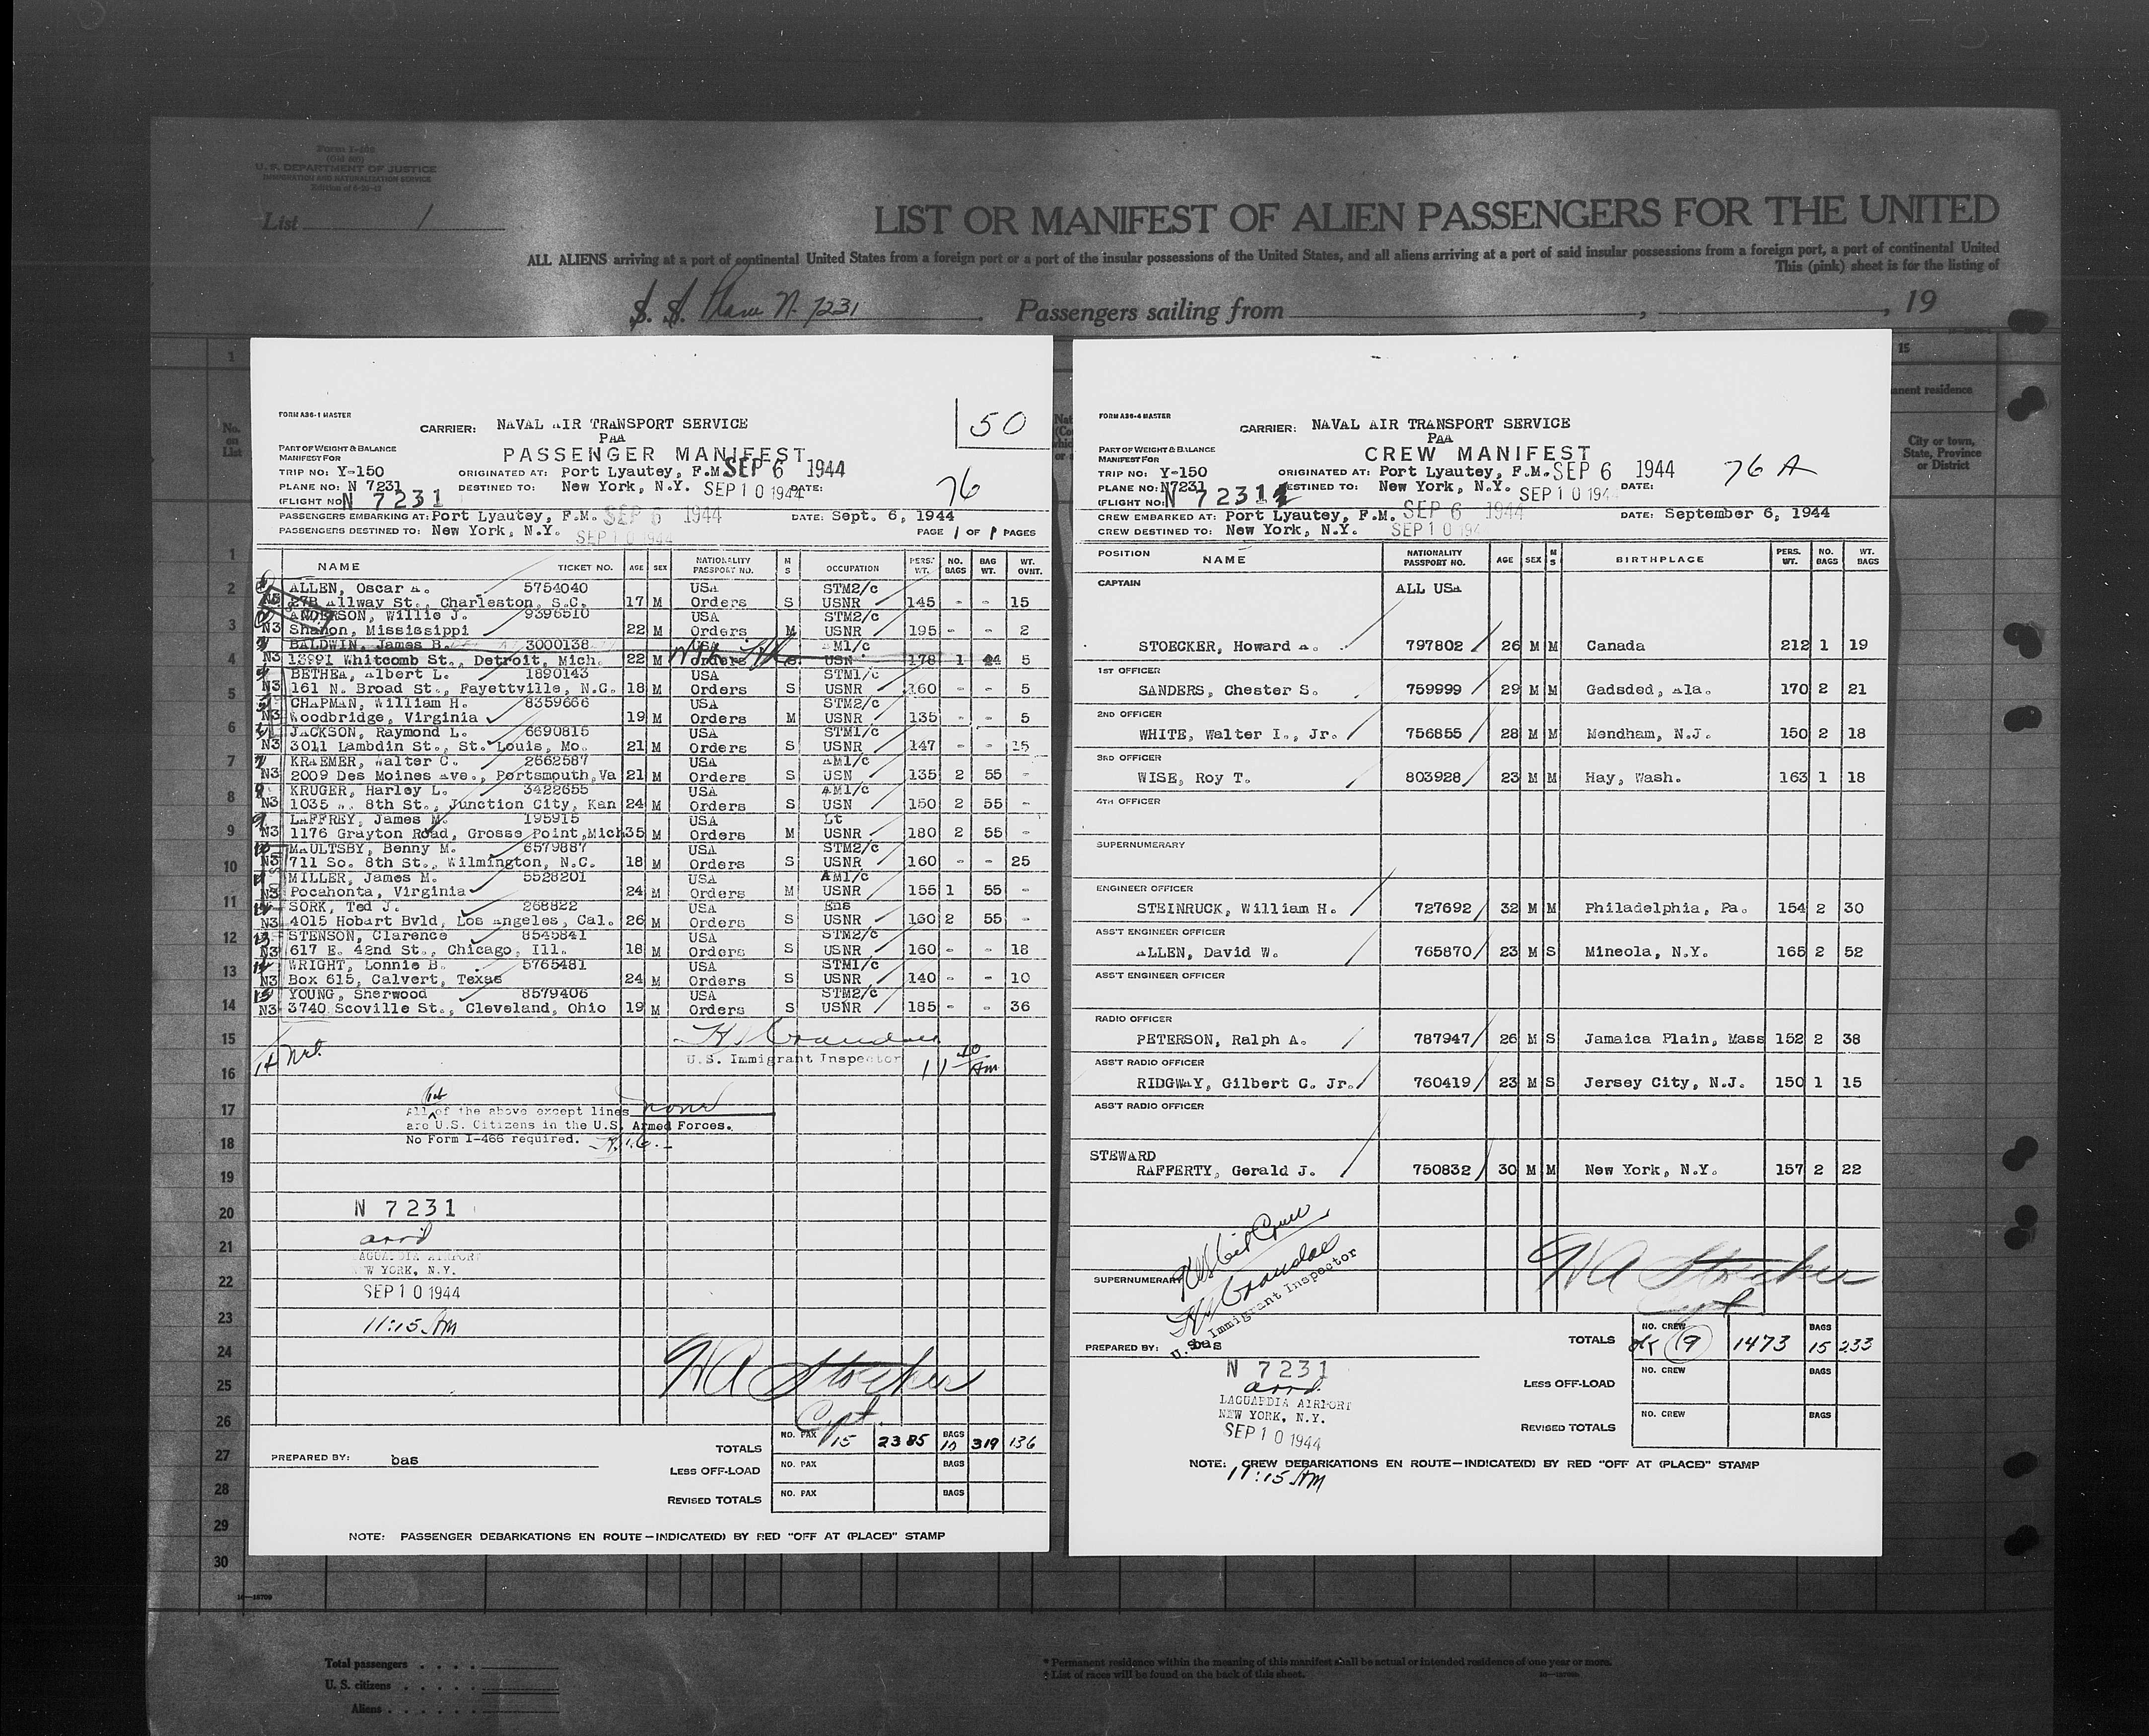 Form I-466
(Old 500)
U. S. DEPARTMENT OF JUSTICE
IMMIGRATION AND NATURALIZATION SERVICE
List 1
LIST OR MANIFEST OF ALIEN PASSENGERS FOR THE UNITED
ALL ALIENS arriving at a port of continental United States from a foreign port or a port of the insular possessions of the United States, and all aliens arriving at a port of said insular possessions from a foreign port, a part of continental United
This (pink) sheet is for the listing of
S. S. Plane N. 7231 . Passengers sailing from , , 19
15
No. on List
anent residence
City or town, State, Province or District
FORM A36-1 MASTER
50
CARRIER: NAVAL AIR TRANSPORT SERVICE
PAA
PART OF WEIGHT & BALANCE
MANIFEST FOR
PASSENGER MANIFEST
TRIP NO: Y-150 ORIGINATED AT: Port Lyautey, F.M. SEP 6 1944
PLANE NO: N 7231 DESTINED TO: New York, N.Y. SEP 10 1944 DATE:
76
(FLIGHT NO: N 7231
PASSENGERS EMBARKING AT: Port Lyautey, F.M. SEP 6 1944 DATE: Sept. 6, 1944
PASSENGERS DESTINED TO: New York, N.Y. SEP 10 1944 PAGE 1 OF 1 PAGES
NAME TICKET NO. AGE SEX NATIONALITY PASSPORT NO. M S OCCUPATION PERS. WT. NO. BAGS BAG WT. WT. OVNT.
ALLEN, Oscar A. 5754040 USA STM2/c
N3 27B Ailway St., Charleston, S.C. 17 M Orders S USNR 145 - - 15
ANDERSON, Willie J. 9396510 USA STM2/c
N3 Shanon, Mississippi 22 M Orders M USNR 195 - - 2
BALDWIN, James B. 3000138 USA AM1/c
N3 13991 Whitcomb St., Detroit, Mich. 22 M Orders S USN 178 1 44 5
BETHEA, Albert L. 1890143 USA STM1/c
N3 161 N. Broad St., Fayettville, N.C. 18 M Orders S USNR 160 - - 5
CHAPMAN, William H. 8359666 USA STM2/c
N3 Woodbridge, Virginia 19 M Orders M USNR 135 - - 5
JACKSON, Raymond L. 6690815 USA STM1/c
N3 3011 Lambdin St., St. Louis, Mo. 21 M Orders S USNR 147 - - 15
KRAEMER, Walter C. 2662587 USA AM1/c
N3 2009 Des Moines Ave., Portsmouth,Va 21 M Orders S USN 135 2 55 -
KRUGER, Harley L. 3422655 USA AM1/c
N3 1035 W. 8th St., Junction City, Kan 24 M Orders S USN 150 2 55 -
LAFFREY, James M. 195915 USA Lt
N3 1176 Grayton Road, Grosse Point,Mich 35 M Orders M USNR 180 2 55 -
MAULTSBY, Benny M. 6579887 USA STM2/c
N3 711 So. 8th St., Wilmington, N.C. 18 M Orders S USNR 160 - - 25
MILLER, James M. 5528201 USA AM1/c
N3 Pocahonta, Virginia 24 M Orders M USNR 155 1 55 -
SORK, Ted J. 268822 USA Ens
N3 4015 Hobart Bvld, Los Angeles, Cal. 26 M Orders S USNR 160 2 55 -
STENSON, Clarence 8545841 USA STM2/c
N3 617 E. 42nd St., Chicago, Ill. 18 M Orders S USNR 160 - - 18
WRIGHT, Lonnie B. 5765481 USA STM1/c
N3 Box 615, Calvert, Texas 24 M Orders S USNR 140 - - 10
YOUNG, Sherwood 8579406 USA STM2/c
N3 3740 Scoville St., Cleveland, Ohio 19 M Orders S USNR 185 - - 36
U.S. Immigrant Inspector
All of the above except lines none
are U.S. Citizens in the U.S. Armed Forces.
No Form I-466 required.
N 7231
arrd
LAGUARDIA AIRPORT
NEW YORK, N.Y.
SEP 10 1944
11:15 AM
HA Stoecker
Cpt.
TOTALS NO. PAX 15 2385 BAGS 10 319 136
PREPARED BY: bas
LESS OFF-LOAD NO. PAX BAGS
REVISED TOTALS NO. PAX BAGS
NOTE: PASSENGER DEBARKATIONS EN ROUTE—INDICATE(D) BY RED "OFF AT (PLACE)" STAMP
FORM A36-4 MASTER
CARRIER: NAVAL AIR TRANSPORT SERVICE
PAA
PART OF WEIGHT & BALANCE
MANIFEST FOR
CREW MANIFEST
TRIP NO: Y-150 ORIGINATED AT: Port Lyautey, F.M. SEP 6 1944
76 A
PLANE NO: N7231 DESTINED TO: New York, N.Y. SEP 10 1944 DATE:
(FLIGHT NO: N 7231
CREW EMBARKED AT: Port Lyautey, F.M. SEP 6 1944 DATE: September 6, 1944
CREW DESTINED TO: New York, N.Y. SEP 10 194
POSITION NAME NATIONALITY PASSPORT NO. AGE SEX M S BIRTHPLACE PERS. WT. NO. BAGS WT. BAGS
CAPTAIN ALL USA
STOECKER, Howard A. 797802 26 M M Canada 212 1 19
1ST OFFICER
SANDERS, Chester S. 759999 29 M M Gadsded, Ala. 170 2 21
2ND OFFICER
WHITE, Walter I., Jr. 756855 28 M M Mendham, N.J. 150 2 18
3RD OFFICER
WISE, Roy T. 803928 23 M M Hay, Wash. 163 1 18
4TH OFFICER
SUPERNUMERARY
ENGINEER OFFICER
STEINRUCK, William H. 727692 32 M M Philadelphia, Pa. 154 2 30
ASS'T ENGINEER OFFICER
ALLEN, David W. 765870 23 M S Mineola, N.Y. 165 2 52
ASS'T ENGINEER OFFICER
RADIO OFFICER
PETERSON, Ralph A. 787947 26 M S Jamaica Plain, Mass 152 2 38
ASS'T RADIO OFFICER
RIDGWAY, Gilbert C. Jr. 760419 23 M S Jersey City, N.J. 150 1 15
ASS'T RADIO OFFICER
STEWARD
RAFFERTY, Gerald J. 750832 30 M M New York, N.Y. 157 2 22
SUPERNUMERARY
U.S. Immigrant Inspector
HA Stoecker
Cpt
TOTALS NO. CREW 9 1473 BAGS 15 233
PREPARED BY: bas
LESS OFF-LOAD NO. CREW BAGS
REVISED TOTALS NO. CREW BAGS
N 7231
arrd.
LAGUARDIA AIRPORT
NEW YORK, N.Y.
SEP 10 1944
NOTE: CREW DEBARKATIONS EN ROUTE—INDICATE(D) BY RED "OFF AT (PLACE)" STAMP
11:15 AM
1
2
3
4
5
6
7
8
9
10
11
12
13
14
15
16
17
18
19
20
21
22
23
24
25
26
27
28
29
30
Total passengers . . . .
U. S. citizens . . . . .
Aliens . . . . .
* Permanent residence within the meaning of this manifest shall be actual or intended residence of one year or more.
† List of races will be found on the back of this sheet.